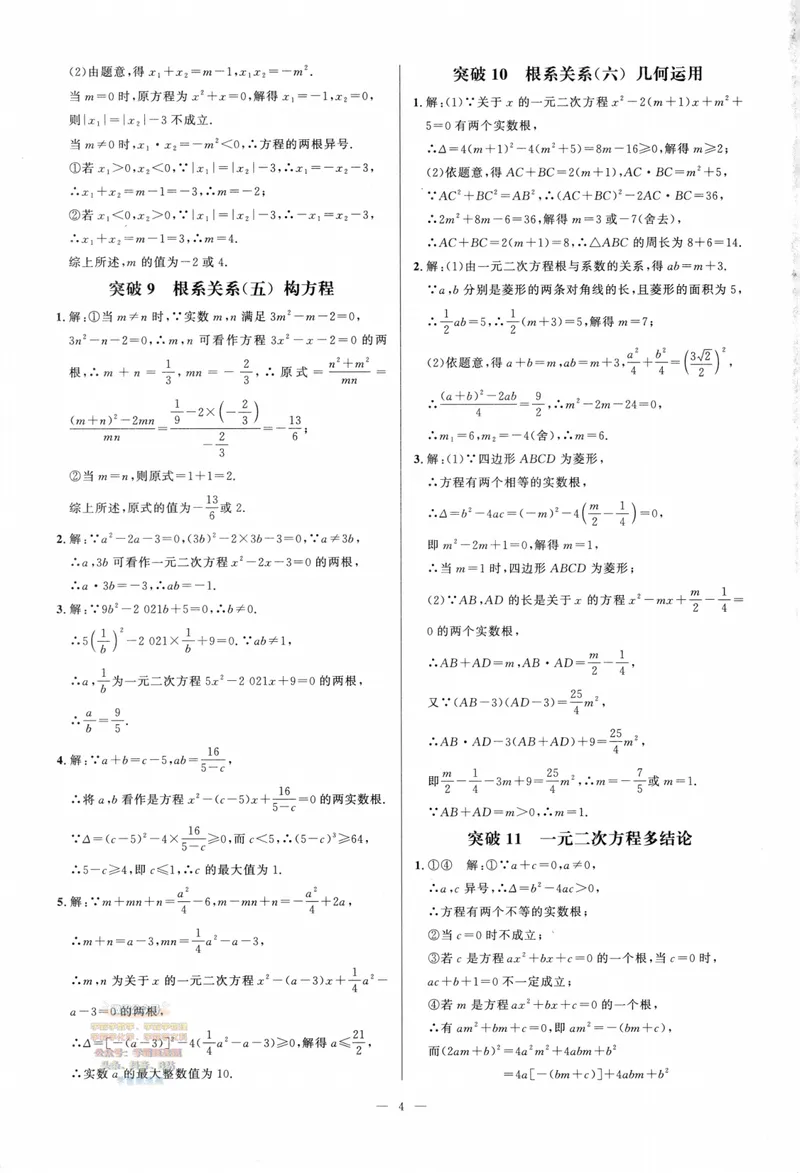 (2)由题意,得 x₁+x₂=m-1,x₁x₂=-m².
当 m=0 时,原方程为 x²+x=0,解得 x₁=-1,x₂=0,
则|x₁|=|x₂|-3 不成立.
当 m≠0 时,x₁·x₂=-m²<0,∴方程的两根异号.
①若 x₁>0,x₂<0,∵|x₁|=|x₂|-3,∴x₁=-x₂-3,
∴x₁+x₂=m-1=-3,∴m=-2;
②若 x₁<0,x₂>0,∵|x₁|=|x₂|-3,∴-x₁=x₂-3,
∴x₁+x₂=m-1=3,∴m=4.
综上所述,m 的值为-2 或 4.
突破 9 根系关系(五) 构方程
1.解:①当 m≠n 时,∵实数 m,n 满足 3m²-m-2=0,
3n²-n-2=0,∴m,n 可看作方程 3x²-x-2=0 的两
根,∴m+n=1/3,mn=-2/3,∴原式=(n²+m²)/mn=
((m+n)²-2mn)/mn=(1/9-2×(-2/3))/(-2/3)=-13/6;
②当 m=n,则原式=1+1=2.
综上所述,原式的值为-13/6或 2.
2.解:∵a²-2a-3=0,(3b)²-2×3b-3=0,∵a≠3b,
∴a,3b 可看作一元二次方程 x²-2x-3=0 的两根,
∴a·3b=-3,∴ab=-1.
3.解:∵9b²-2 021b+5=0,∴b≠0.
∴5(1/b)²-2 021×1/b+9=0.∵ab≠1,
∴a,1/b为一元二次方程 5x²-2 021x+9=0 的两根,
∴a/b=9/5.
4.解:∵a+b=c-5,ab=16/(5-c),
∴将 a,b 看作是方程 x²-(c-5)x+16/(5-c)=0 的两实数根.
∵Δ=(c-5)²-4×16/(5-c)≥0,而 c<5,∴(5-c)³≥64,
∴5-c≥4,即 c≤1,∴c 的最大值为 1.
5.解:∵m+mn+n=a²/4-6,m-mn+n=-a²/4+2a,
∴m+n=a-3,mn=1/4a²-a-3,
∴m,n 为关于 x 的一元二次方程 x²-(a-3)x+1/4a²-
a-3=0 的两根,
∴Δ=[-(a-3)]²-4(1/4a²-a-3)≥0,解得 a≤21/2,
∴实数 a 的最大整数值为 10.
突破 10 根系关系(六) 几何运用
1.解:(1)∵关于 x 的一元二次方程 x²-2(m+1)x+m²+
5=0 有两个实数根,
∴Δ=4(m+1)²-4(m²+5)=8m-16≥0,解得 m≥2;
(2)依题意,得 AC+BC=2(m+1),AC·BC=m²+5,
∵AC²+BC²=AB²,∴(AC+BC)²-2AC·BC=36,
∴2m²+8m-6=36,解得 m=3 或-7(舍去),
∴AC+BC=2(m+1)=8,∴△ABC 的周长为 8+6=14.
2.解:(1)由一元二次方程根与系数的关系,得 ab=m+3.
∵a,b 分别是菱形的两条对角线的长,且菱形的面积为 5,
∴1/2ab=5,∴1/2(m+3)=5,解得 m=7;
(2)依题意,得 a+b=m,ab=m+3,a²/4+b²/4=(3√2/2)²,
∴((a+b)²-2ab)/4=9/2,∴m²-2m-24=0,
∴m₁=6,m₂=-4(舍),∴m=6.
3.解:(1)∵四边形 ABCD 为菱形,
∴方程有两个相等的实数根,
∴Δ=b²-4ac=(-m)²-4(m/2-1/4)=0,
即 m²-2m+1=0,解得 m=1,
∴当 m=1 时,四边形 ABCD 为菱形;
(2)∵AB,AD 的长是关于 x 的方程 x²-mx+m/2-1/4=
0 的两个实数根,
∴AB+AD=m,AB·AD=m/2-1/4,
又∵(AB-3)(AD-3)=25/4m²,
∴AB·AD-3(AB+AD)+9=25/4m²,
即m/2-1/4-3m+9=25/4m²,∴m=-7/5或 m=1.
∵AB+AD=m>0,∴m=1.
突破 11 一元二次方程多结论
1.①④ 解:①∵a+c=0,a≠0,
∴a,c 异号,∴Δ=b²-4ac>0,
∴方程有两个不等的实数根;
②当 c=0 时不成立;
③若 c 是方程 ax²+bx+c=0 的一个根,当 c=0 时,
ac+b+1=0 不一定成立;
④若 m 是方程 ax²+bx+c=0 的一个根,
∴有 am²+bm+c=0,即 am²=-(bm+c),
而(2am+b)²=4a²m²+4abm+b²
=4a[-(bm+c)]+4abm+b²
— 4 —